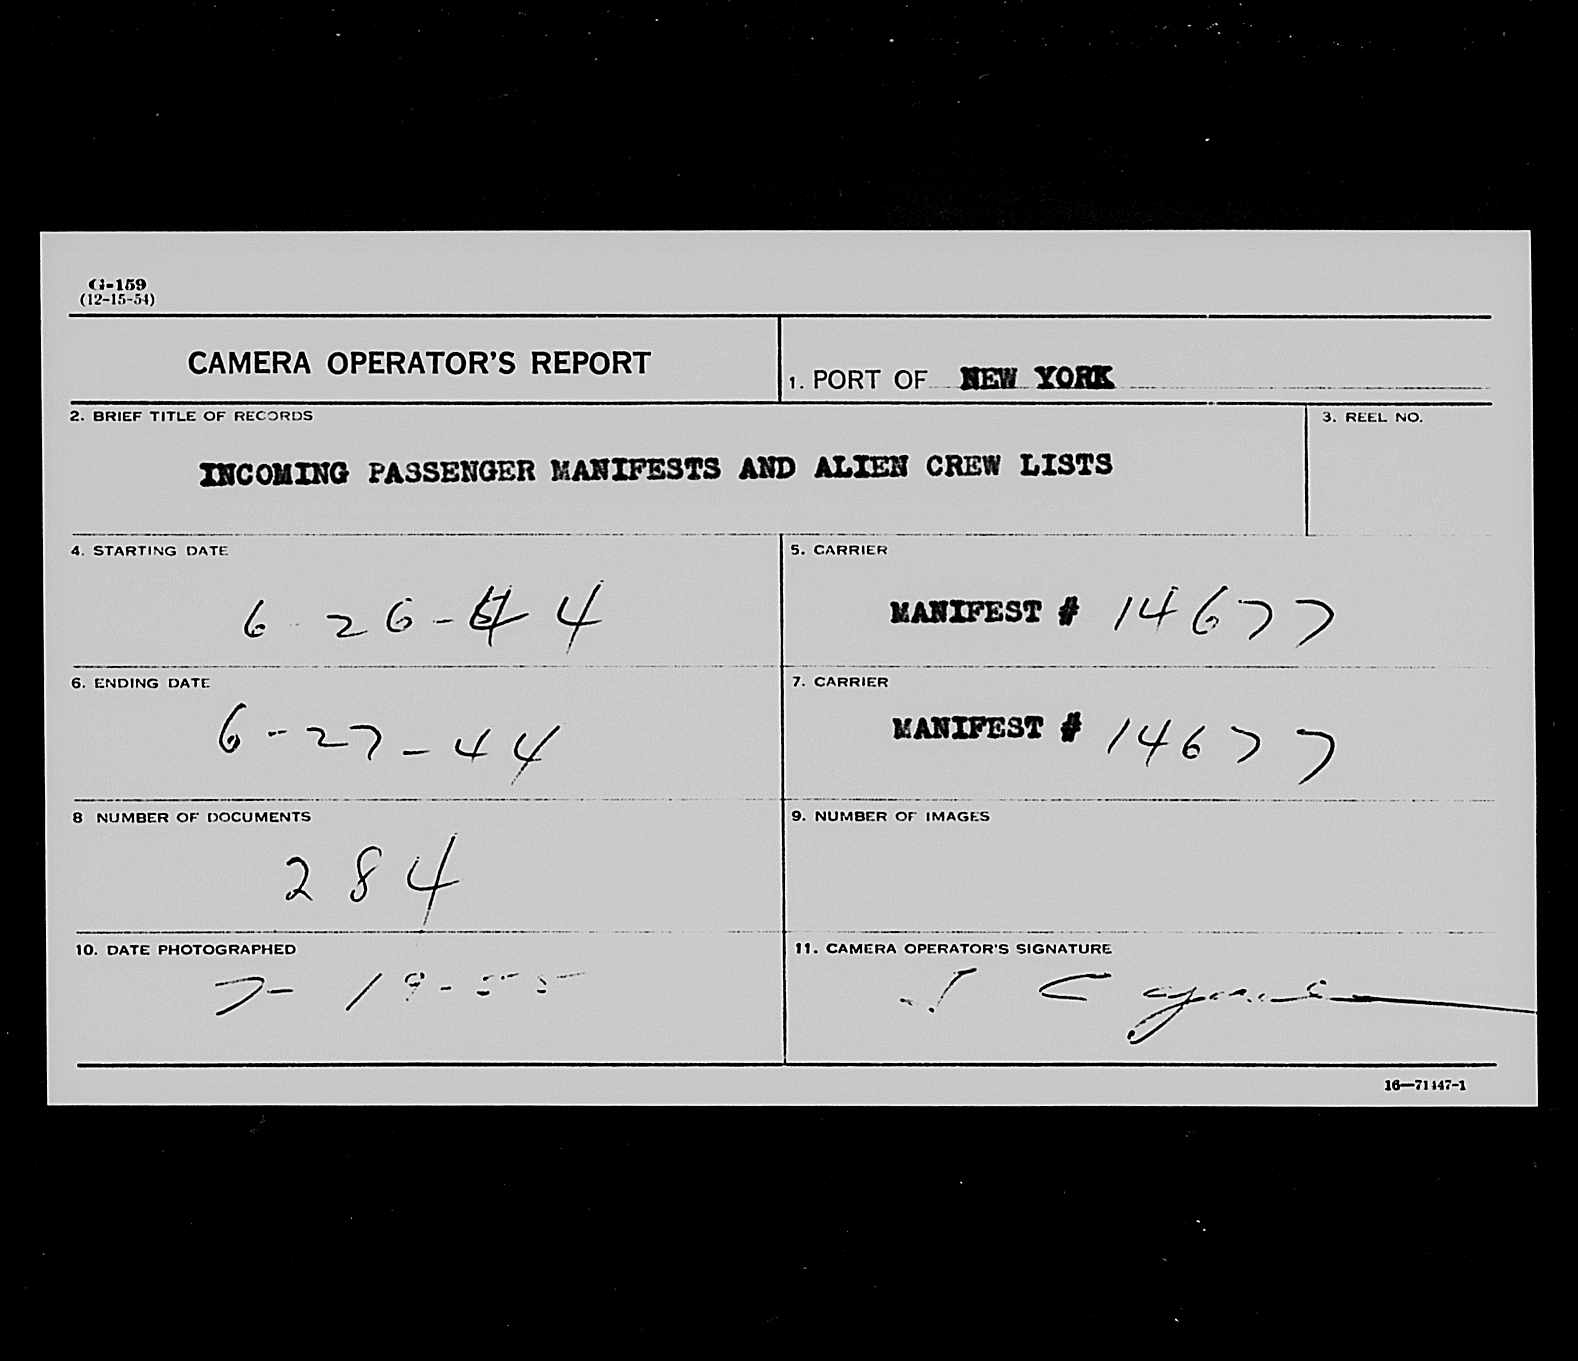 G-159
(12-15-54)
CAMERA OPERATOR'S REPORT
1. PORT OF NEW YORK
2. BRIEF TITLE OF RECORDS
3. REEL NO.
INCOMING PASSENGER MANIFESTS AND ALIEN CREW LISTS
4. STARTING DATE
5. CARRIER
6-26-44
MANIFEST # 14677
6. ENDING DATE
7. CARRIER
6-27-44
MANIFEST # 14677
8 NUMBER OF DOCUMENTS
9. NUMBER OF IMAGES
284
10. DATE PHOTOGRAPHED
11. CAMERA OPERATOR'S SIGNATURE
7-19-55
J C
16—71447-1